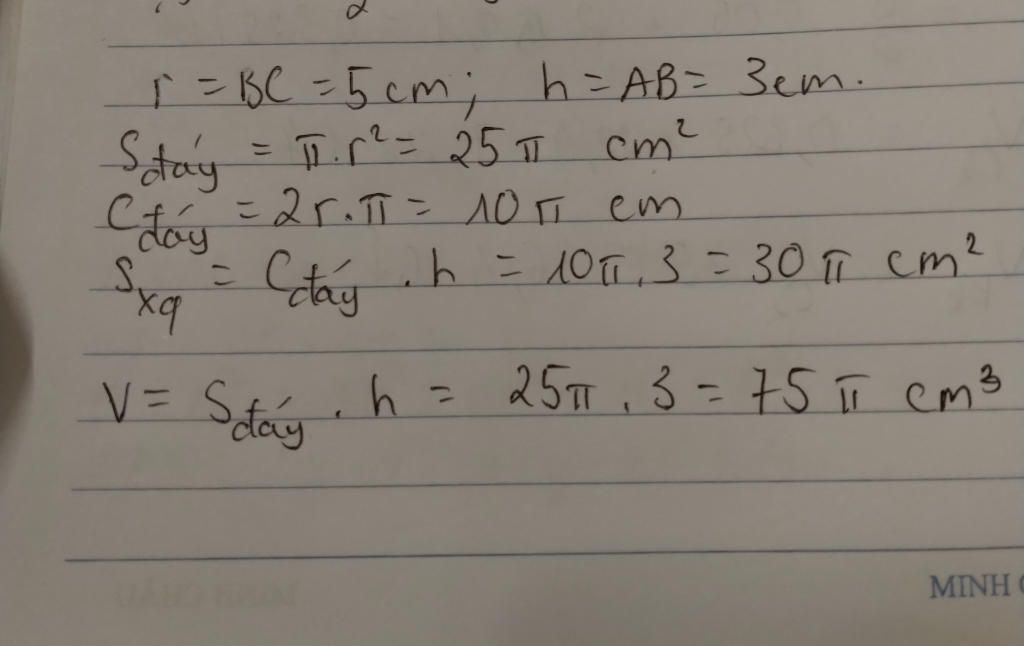 r = BC = 5 cm; h = AB = 3 cm.
S đáy = π.r² = 25 π cm²
C đáy = 2r.π = 10 π cm
S xq = C đáy . h = 10π.3 = 30 π cm²
V = S đáy . h = 25π . 3 = 75 π cm³
MINH C